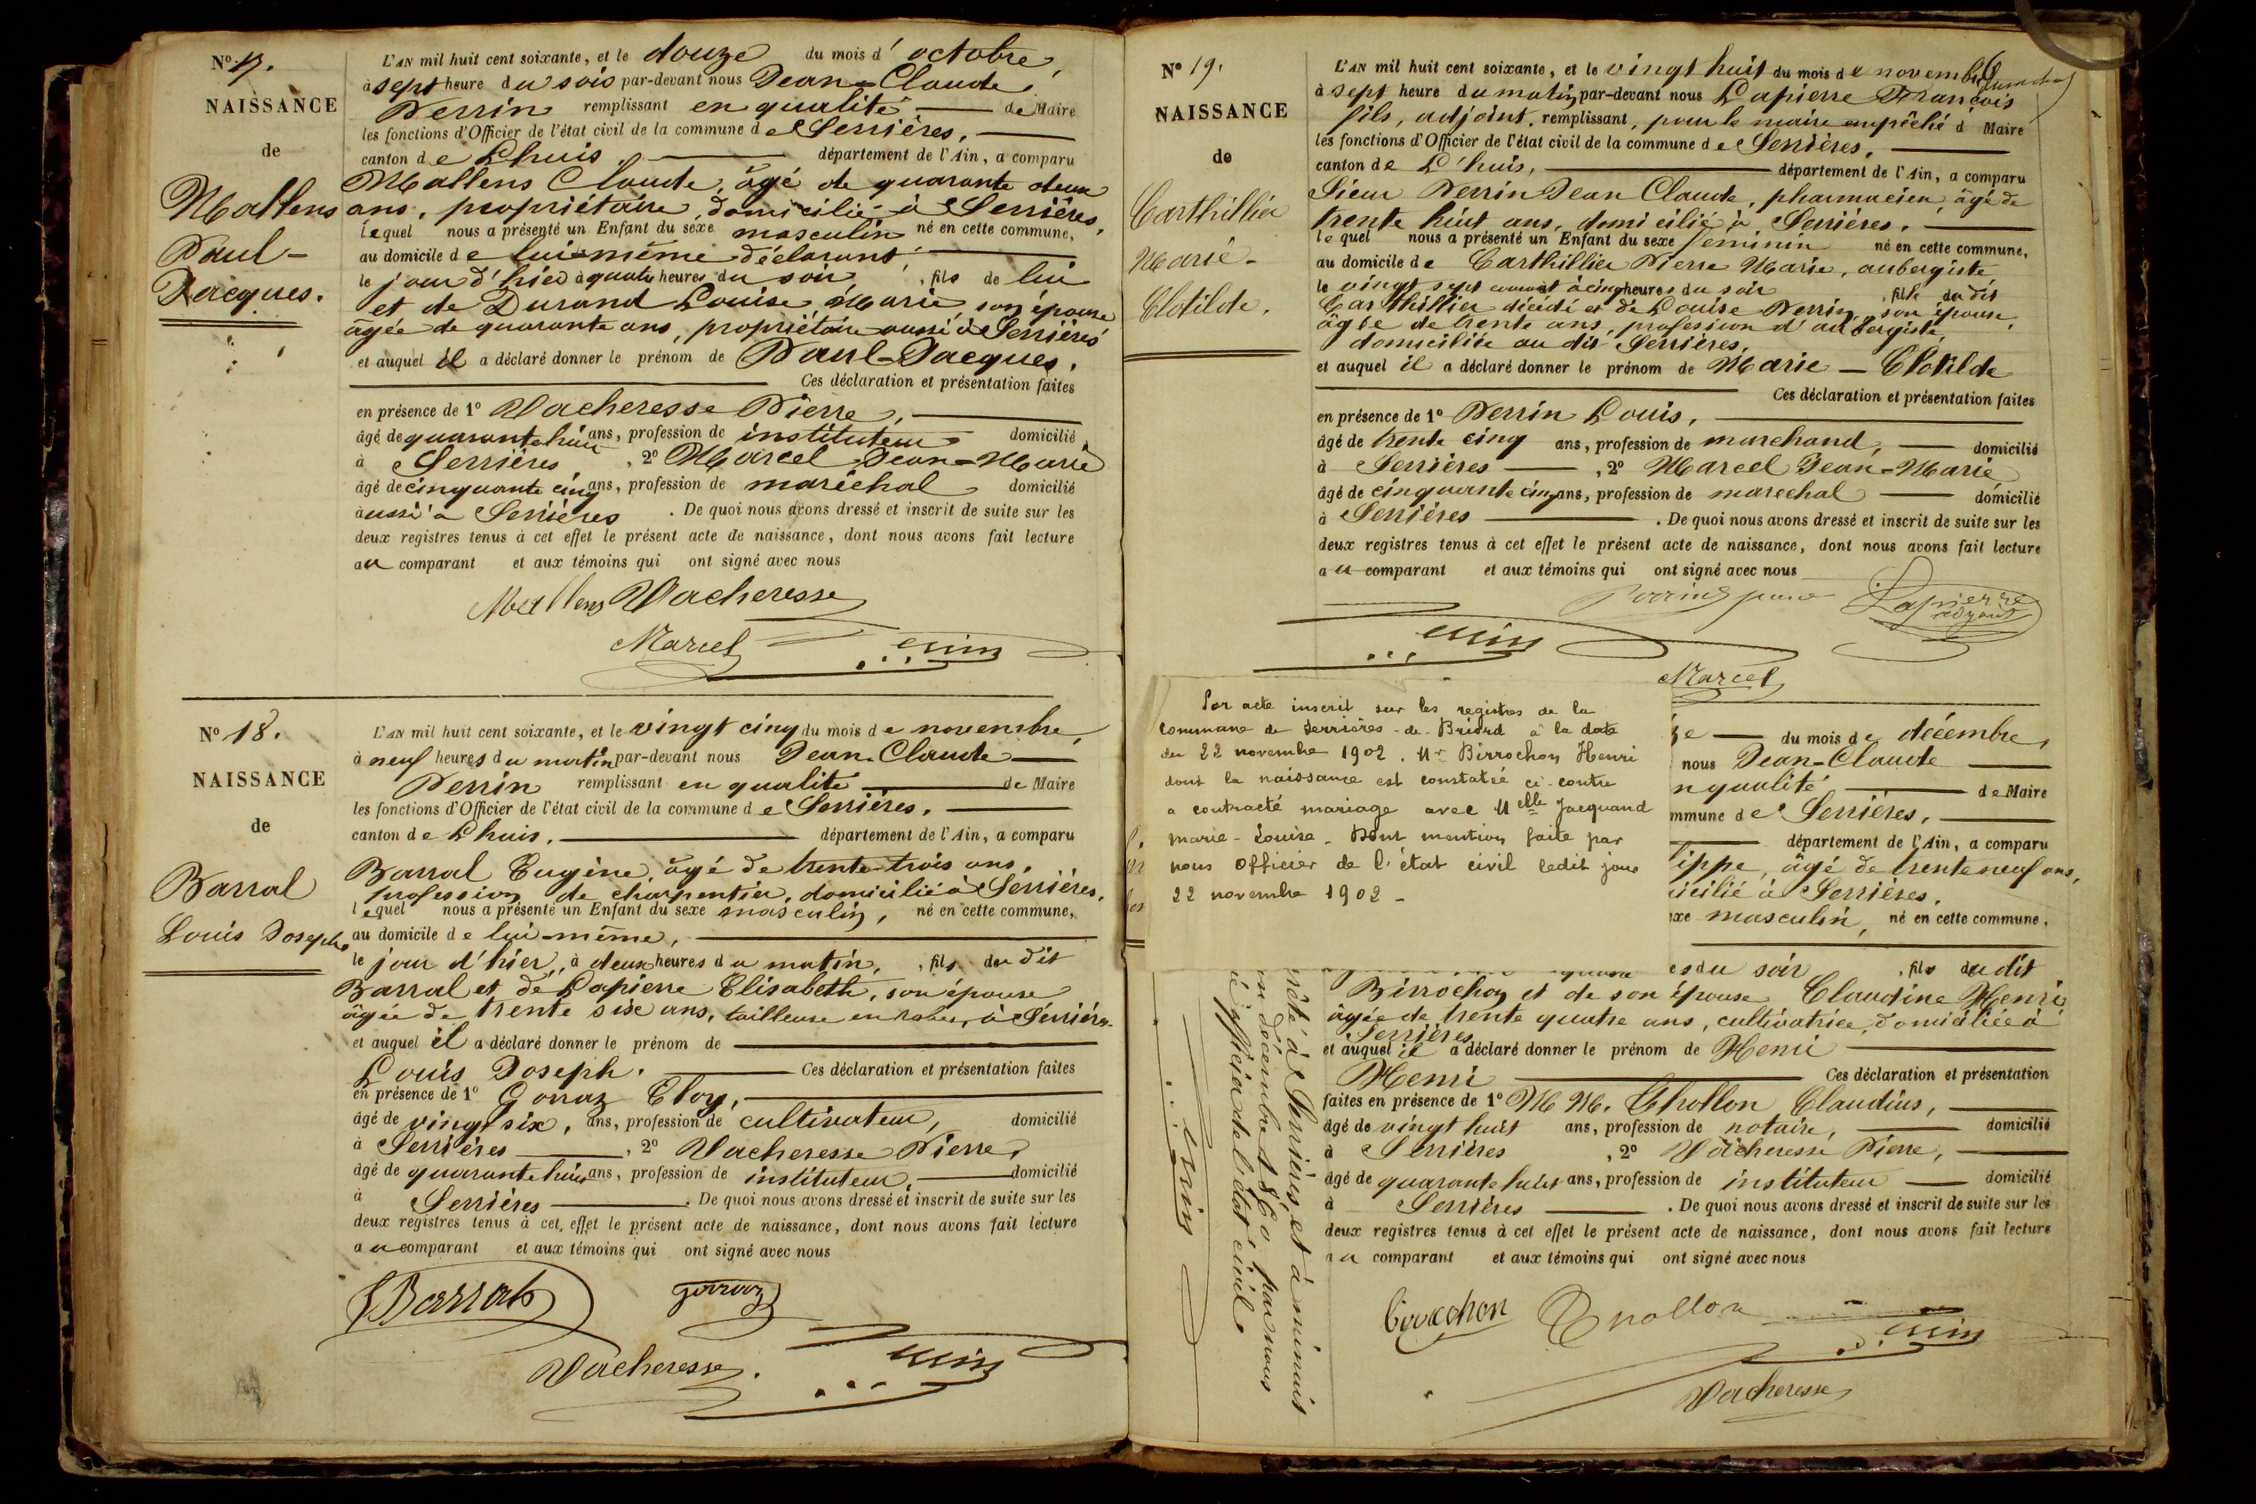 N° 17.
NAISSANCE
de
Mallens
Paul-
Jacques.
L'AN mil huit cent soixante, et le douze du mois d'octobre,
à sept heure du soir par-devant nous Jean-Claude
Perrin remplissant en qualité de Maire
les fonctions d'Officier de l'état civil de la commune de Serrières,
canton de Lhuis, département de l'Ain, a comparu
Mallens Claude, âgé de quarante deux
ans, propriétaire, domicilié à Serrières,
lequel nous a présenté un Enfant du sexe masculin né en cette commune,
au domicile de lui-même déclarant
le jour d'hier à quatre heures du soir, fils de lui
et de Durand Louise Marie, son épouse
âgée de quarante ans, propriétaire aussi à Serrières
et auquel il a déclaré donner le prénom de Paul-Jacques.
Ces déclaration et présentation faites
en présence de 1° Vacheresse Pierre,
âgé de quarante huit ans, profession de instituteur domicilié
à Serrières, 2° Marcel Jean-Marie
âgé de cinquante cinq ans, profession de maréchal domicilié
aussi à Serrières. De quoi nous avons dressé et inscrit de suite sur les
deux registres tenus à cet effet le présent acte de naissance, dont nous avons fait lecture
au comparant et aux témoins qui ont signé avec nous
Mallens Vacheresse
Marcel Perrin
N° 18.
NAISSANCE
de
Barral
Louis Joseph
L'AN mil huit cent soixante, et le vingt cinq du mois de novembre,
à neuf heures du matin par-devant nous Jean-Claude
Perrin remplissant en qualité de Maire
les fonctions d'Officier de l'état civil de la commune de Serrières,
canton de Lhuis, département de l'Ain, a comparu
Barral Eugène, âgé de trente-trois ans,
profession de charpentier, domicilié à Serrières,
lequel nous a présenté un Enfant du sexe masculin, né en cette commune,
au domicile de lui-même,
le jour d'hier, à deux heures du matin, fils du dit
Barral et de Lapierre Elisabeth, son épouse
âgée de trente six ans, tailleuse en robes, à Serrières
et auquel il a déclaré donner le prénom de
Louis Joseph. Ces déclaration et présentation faites
en présence de 1° Gonraz Eloy,
âgé de vingt six, ans, profession de cultivateur, domicilié
à Serrières, 2° Vacheresse Pierre,
âgé de quarante huit ans, profession de instituteur, domicilié
à Serrières. De quoi nous avons dressé et inscrit de suite sur les
deux registres tenus à cet effet le présent acte de naissance, dont nous avons fait lecture
au comparant et aux témoins qui ont signé avec nous
Barral
Vacheresse Perrin
N° 19.
NAISSANCE
de
Carthillier
Marie-
Clotilde.
L'AN mil huit cent soixante, et le vingt huit du mois de novembre
à sept heure du matin par-devant nous Lapierre François
fils, adjoint, remplissant, pour le maire empêché d Maire
les fonctions d'Officier de l'état civil de la commune de Serrières,
canton de L'huis, département de l'Ain, a comparu
Sieur Perrin Jean Claude, pharmacien, âgé de
trente huit ans, domicilié à Serrières,
lequel nous a présenté un Enfant du sexe féminin né en cette commune,
au domicile de Carthillier Pierre Marie, aubergiste
le vingt sept courant à cinq heures du soir, fille du dit
Carthillier décédé et de Louise Perrin, son épouse,
âgée de trente ans, profession d'aubergiste
domiciliée au dit Serrières,
et auquel il a déclaré donner le prénom de Marie - Clotilde
Ces déclaration et présentation faites
en présence de 1° Perrin Louis,
âgé de trente cinq ans, profession de marchand, domicilié
à Serrières, 2° Marcel Jean-Marie
âgé de cinquante cinq ans, profession de marechal domicilié
à Serrières. De quoi nous avons dressé et inscrit de suite sur les
deux registres tenus à cet effet le présent acte de naissance, dont nous avons fait lecture
au comparant et aux témoins qui ont signé avec nous
Perrin Lapierre
adjoint
Perrin
Marcel
Par acte inscrit sur les registres de la
commune de Serrières-de-Briord à la date
du 22 novembre 1902. Mr Birrochon Henri
dont la naissance est constatée ci-contre
a contracté mariage avec Melle Jacquand
Marie-Louise. Dont mention faite par
nous Officier de l'état civil ledit jour
22 novembre 1902 -
ze du mois de décembre,
nous Jean-Claude
n qualité de Maire
mmune de Serrières,
département de l'Ain, a comparu
lippe, âgé de trente neuf ans,
icilié à Serrières,
exe masculin, né en cette commune,
es du soir, fils du dit
Birrochon et de son épouse Claudine Henri
âgée de trente quatre ans, cultivatrice, domiciliée à
Serrières
et auquel il a déclaré donner le prénom de Henri
Henri Ces déclaration et présentation
faites en présence de 1° M M. Chollon Claudius,
âgé de vingt huit ans, profession de notaire, domicilié
à Serrières, 2° Vacheresse Pierre,
âgé de quarante huit ans, profession de instituteur domicilié
à Serrières. De quoi nous avons dressé et inscrit de suite sur les
deux registres tenus à cet effet le présent acte de naissance, dont nous avons fait lecture
au comparant et aux témoins qui ont signé avec nous
Birrochon Chollon Perrin
Vacheresse
rêté à Serrières, et à minuit
un décembre 1860, par nous
officier de l'état civil.
Perrin